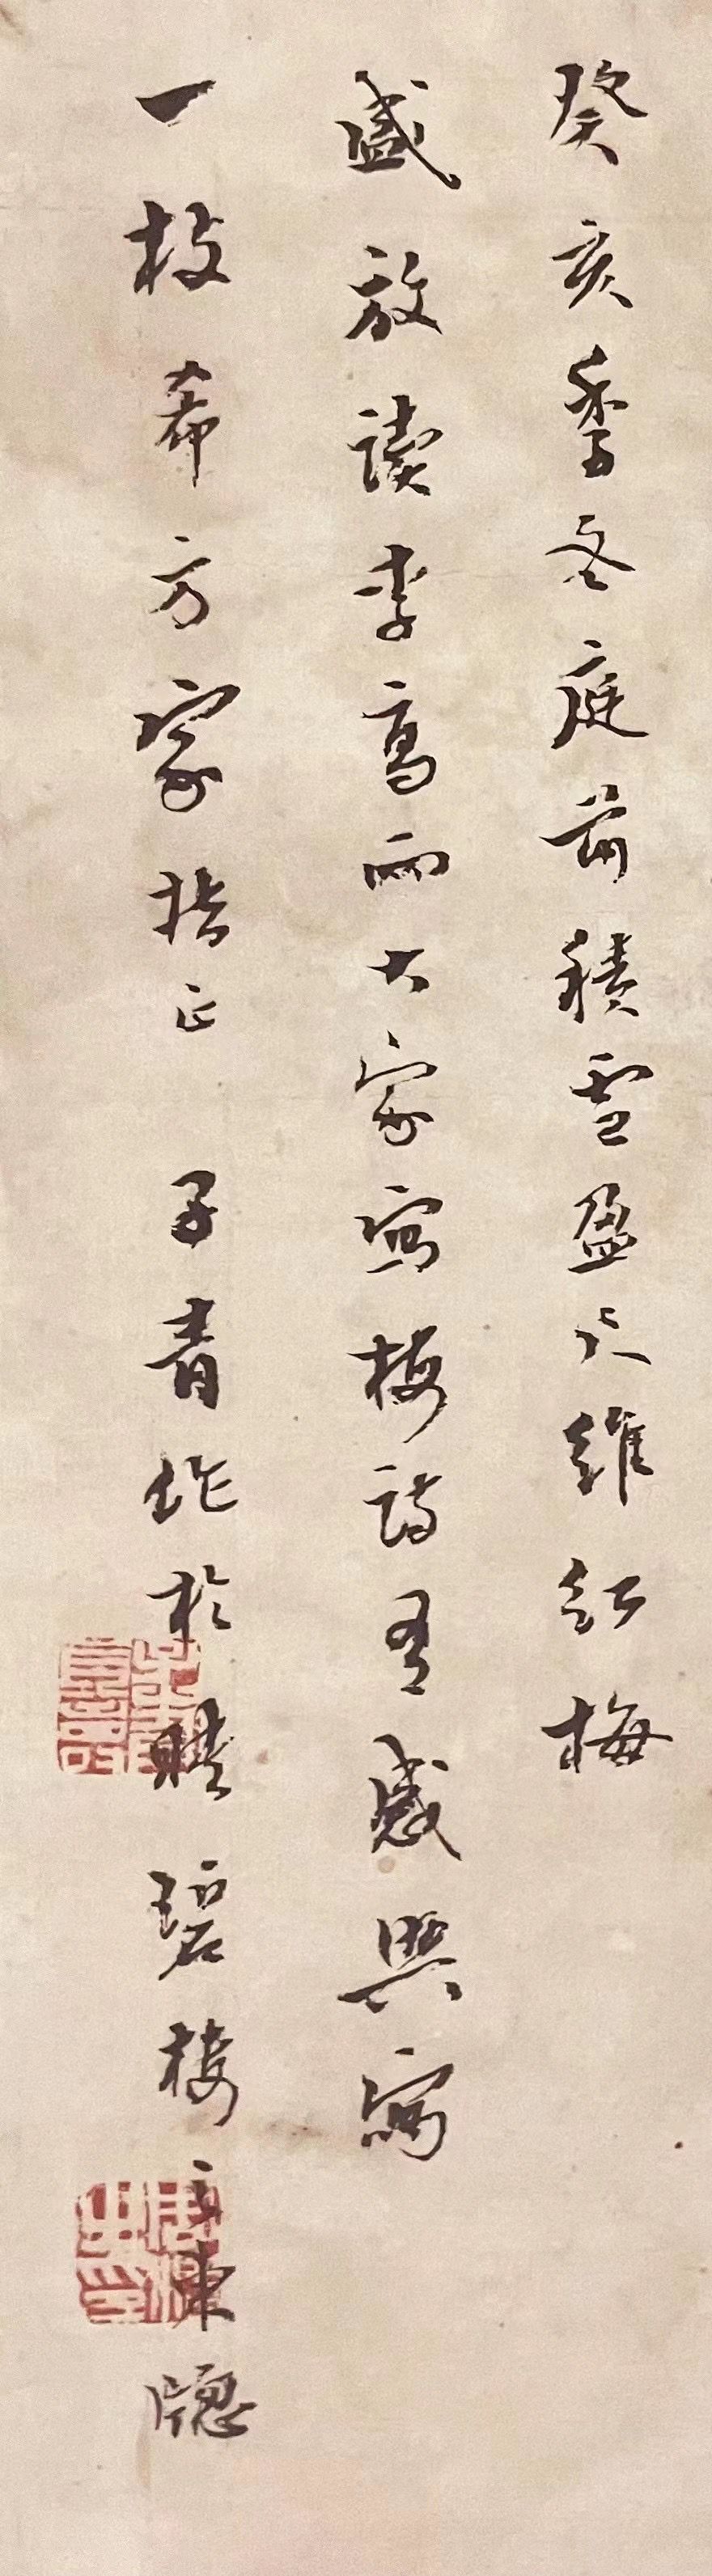 癸亥季冬庭前積雪盈尺維紅梅
盛放讀李高兩大家寫梅詩有感興寫
一枝希方家指正 子青作於晴碧樓之東牕